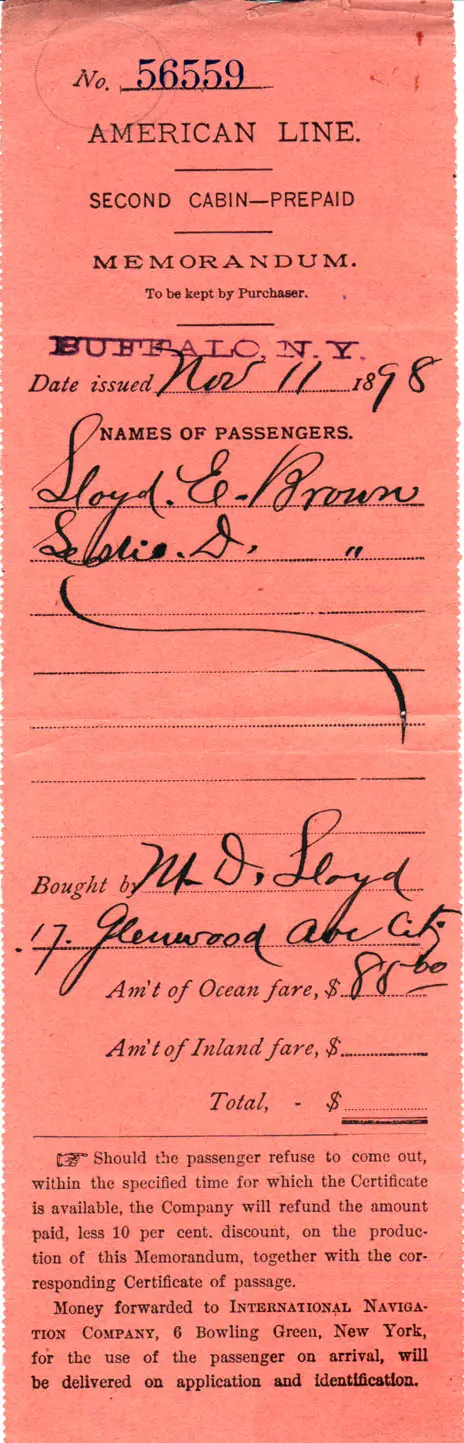 No. 56559
AMERICAN LINE.
SECOND CABIN—PREPAID
MEMORANDUM.
To be kept by Purchaser.
BUFFALO, N. Y.
Date issued Nov 11 1898
NAMES OF PASSENGERS.
Lloyd. E. Brown
Leslie. D. "
Bought by M D. Lloyd
17. Glenwood Ave City
Am't of Ocean fare, $ 88 00
Am't of Inland fare, $
Total, - $
☞ Should the passenger refuse to come out,
within the specified time for which the Certificate
is available, the Company will refund the amount
paid, less 10 per cent. discount, on the produc-
tion of this Memorandum, together with the cor-
responding Certificate of passage.
Money forwarded to INTERNATIONAL NAVIGA-
TION COMPANY, 6 Bowling Green, New York,
for the use of the passenger on arrival, will
be delivered on application and identification.